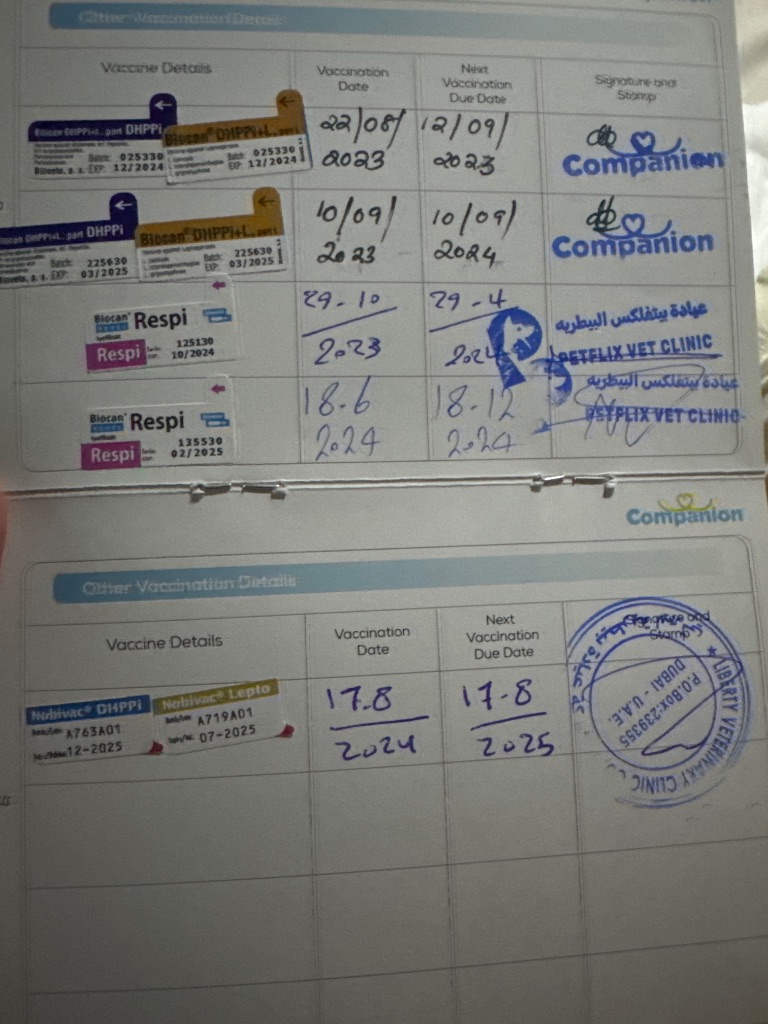 Other Vaccination Details
Vaccine Details
Vaccination Date
Next Vaccination Due Date
Signature and Stamp
Biocan DHPPi+L, part DHPPi
Batch: 025330
Bioveta, a. s. EXP: 12/2024
Biocan® DHPPi+L, part L
Batch: 025330
EXP: 12/2024
22/08/
2023
12/09/
2023
Companion
Biocan DHPPi+L, part DHPPi
Batch: 225630
Bioveta, a. s. EXP: 03/2025
Biocan® DHPPi+L, part L
Batch: 225630
EXP: 03/2025
10/09/
2023
10/09/
2024
Companion
Biocan® Respi
Respi
125130
10/2024
29-10
2023
29-4
2024
عيادة بيتفلكس البيطريه
PETFLIX VET CLINIC
Biocan® Respi
Respi
135530
02/2025
18-6
2024
18-12
2024
عيادة بيتفلكس البيطريه
PETFLIX VET CLINIC
Companion
Other Vaccination Details
Vaccine Details
Vaccination Date
Next Vaccination Due Date
Signature and Stamp
Nobivac® DHPPi
A763A01
12-2025
Nobivac® Lepto
A719A01
07-2025
17.8
2024
17-8
2025
LIBERTY VETERINARY CLINIC
P.O.BOX:239355
DUBAI - U.A.E.